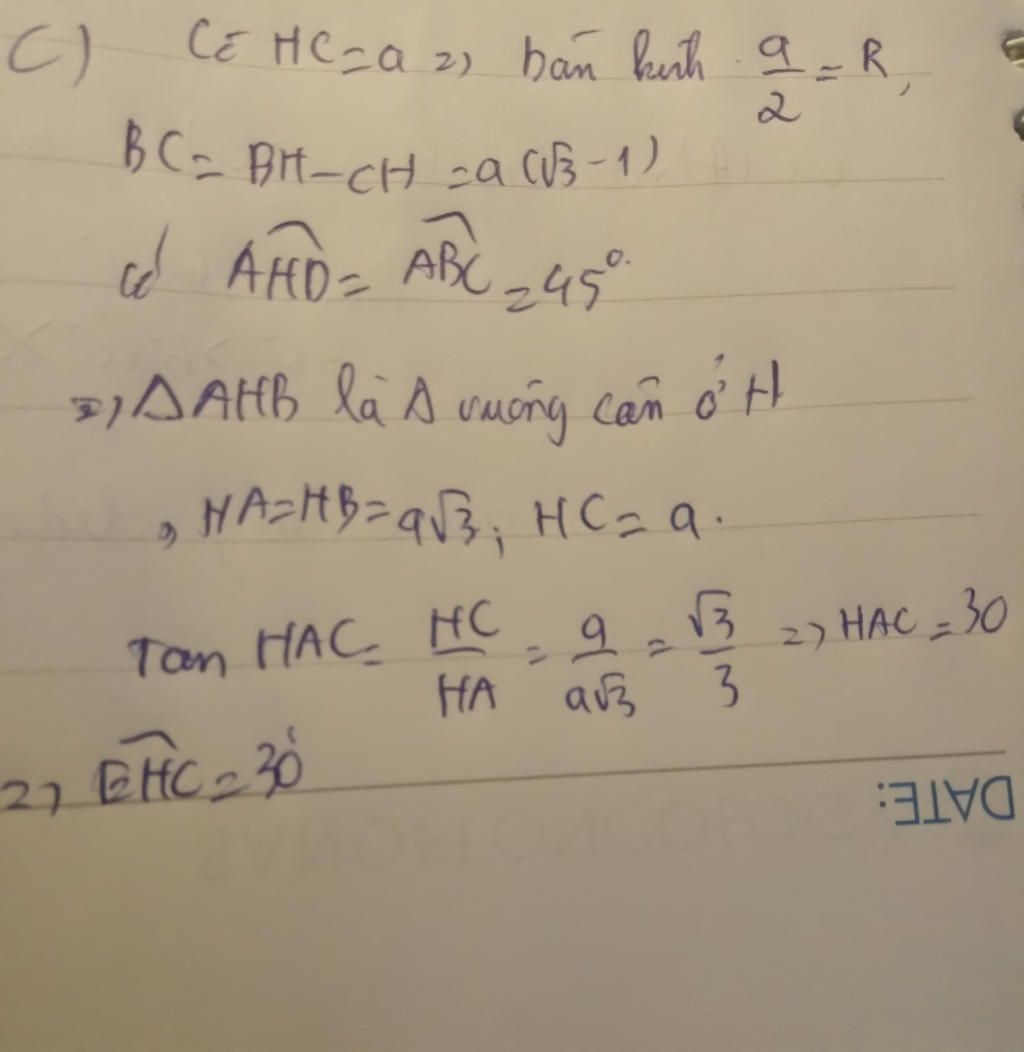 C) Có HC = a => bán kính a/2 = R,
BC = BH - CH = a(√3 - 1)
có AHD = ABC = 45°.
=> ΔAHB là Δ vuông cân ở H
, HA = HB = a√3; HC = a.
Tan HAC = HC/HA = a/a√3 = √3/3 => HAC = 30
=> EHC = 30°
DATE: